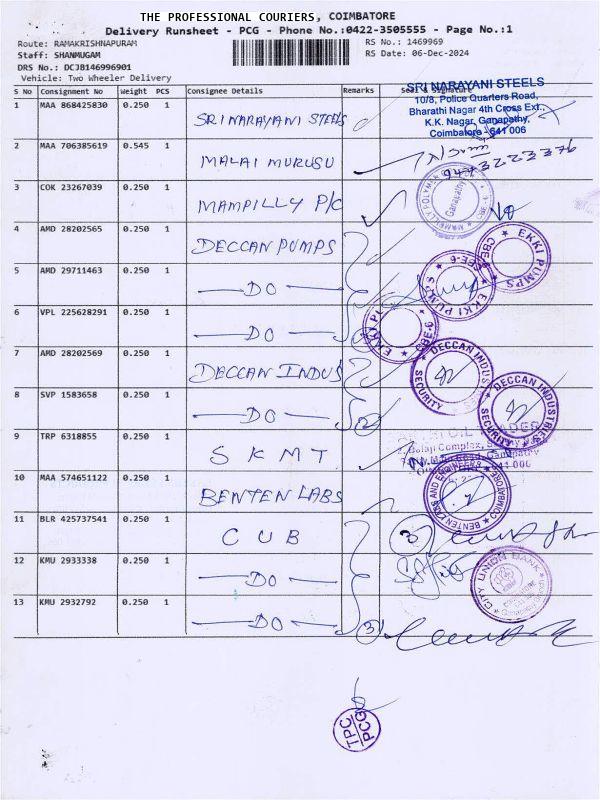 THE PROFESSIONAL COURIERS, COIMBATORE
Delivery Runsheet - PCG - Phone No.:0422-3505555 - Page No.:1
Route: RAMAKRISHNAPURAM
RS No.: 1469969
Staff: SHANMUGAM
RS Date: 06-Dec-2024
DRS No.: DCJ8146996901
Vehicle: Two Wheeler Delivery
S No Consignment No Weight PCS Consignee Details Remarks
1 MAA 868425830 0.250 1 SRI NARAYANI STEELS
SRI NARAYANI STEELS
10/8, Police Quarters Road,
Bharathi Nagar 4th Cross Ext.,
K.K. Nagar, Ganapathy,
Coimbatore - 641 006
2 MAA 706385619 0.545 1 MALAI MURUSU
3 COK 23267039 0.250 1 MAMPILLY P/C
Ganapathy
4 AMD 28202565 0.250 1 DECCAN PUMPS
EKKI PUMPS ★ CBE-6 ★
5 AMD 29711463 0.250 1 DO
EKKI PUMPS ★ CBE-6 ★
6 VPL 225628291 0.250 1 DO
EKKI PUMPS ★ CBE-6 ★
7 AMD 28202569 0.250 1 DECCAN INDUS
DECCAN INDUSTRIES SECURITY
8 SVP 1583658 0.250 1 DO
DECCAN INDUSTRIES SECURITY
9 TRP 6318855 0.250 1 SKMT
10 MAA 574651122 0.250 1 BENTEN LABS
BENTEN LABS AND ENGINEERS ★ COIMBATORE
11 BLR 425737541 0.250 1 CUB 3
12 KMU 2933338 0.250 1 DO
CITY UNION BANK
13 KMU 2932792 0.250 1 DO 3
TPC
PCG